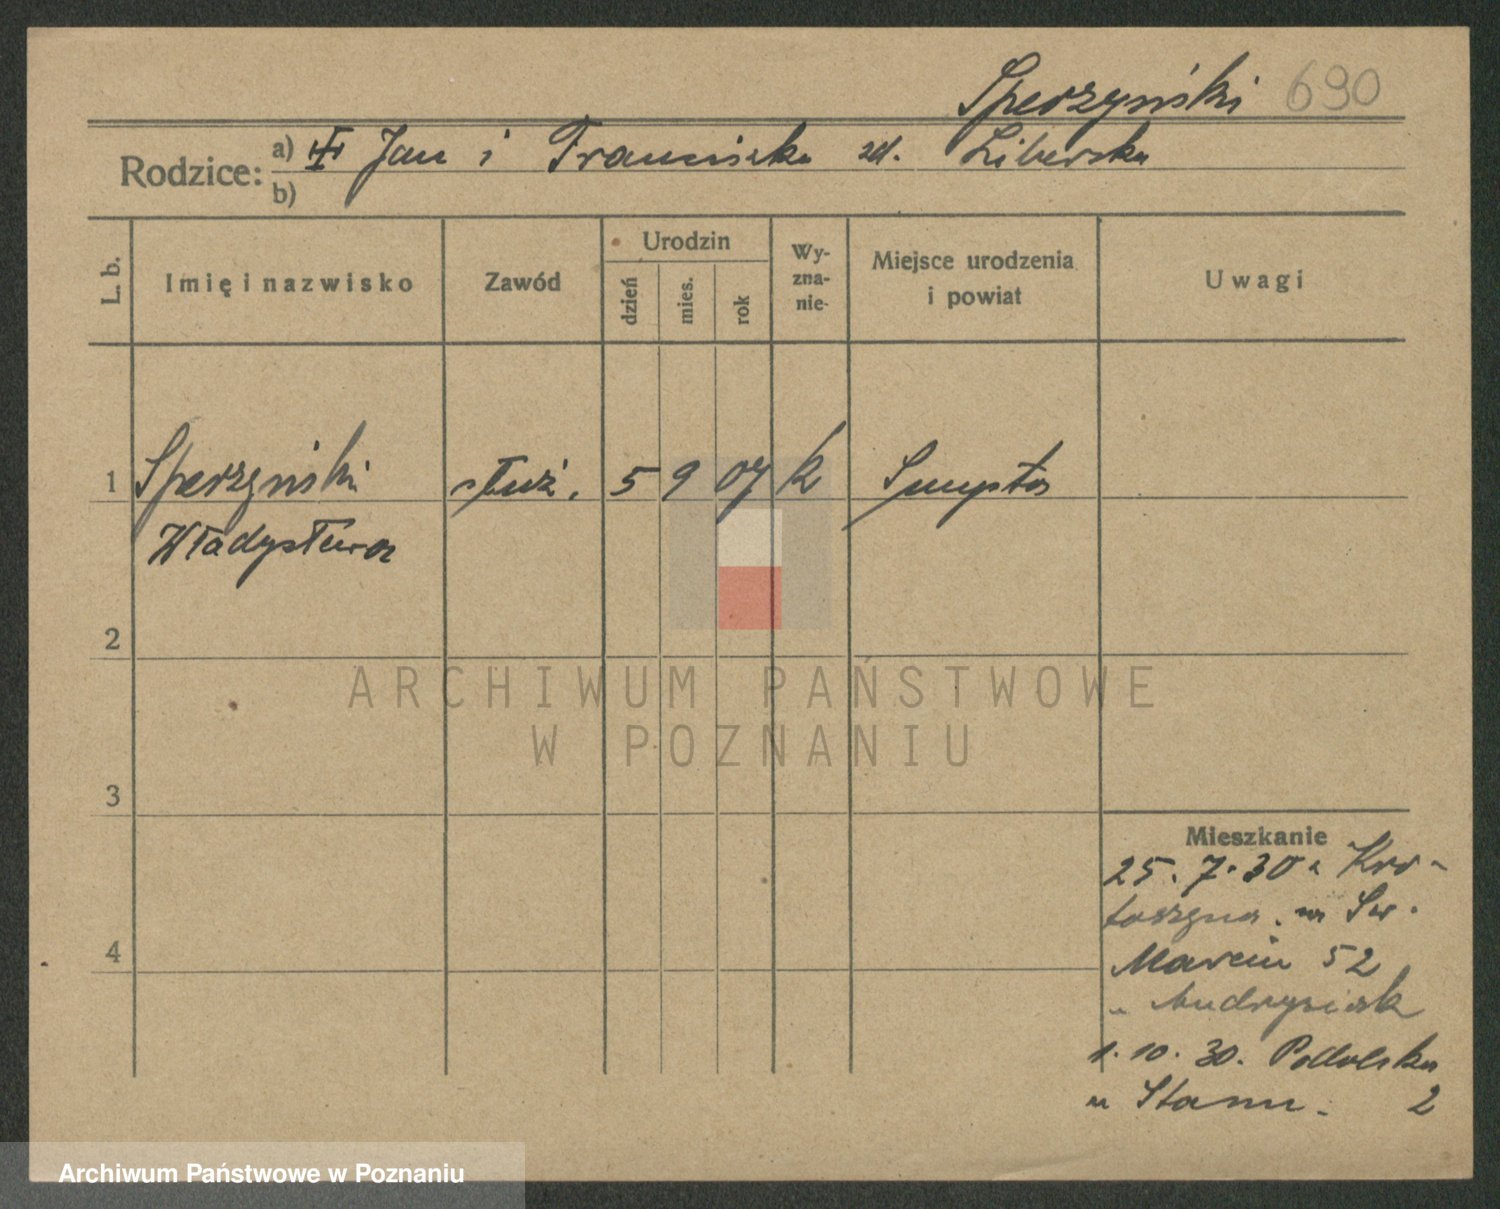 Sperzyński 690
Rodzice: a) Jan i Franciszka zd. Liberska
b)
L. b. Imię i nazwisko Zawód Urodzin dzień mies. rok Wy-zna-nie- Miejsce urodzenia i powiat Uwagi
1 Sperzyński służ. 5 9 07 k
Władysława
2
ARCHIWUM PAŃSTWOWE
W POZNANIU
3
Mieszkanie
25. 7. 30 z Kro-
toszyna. u Św.
4 Marcin 52
u Andrysiak
1. 10. 30. Podolska
u 2
Archiwum Państwowe w Poznaniu